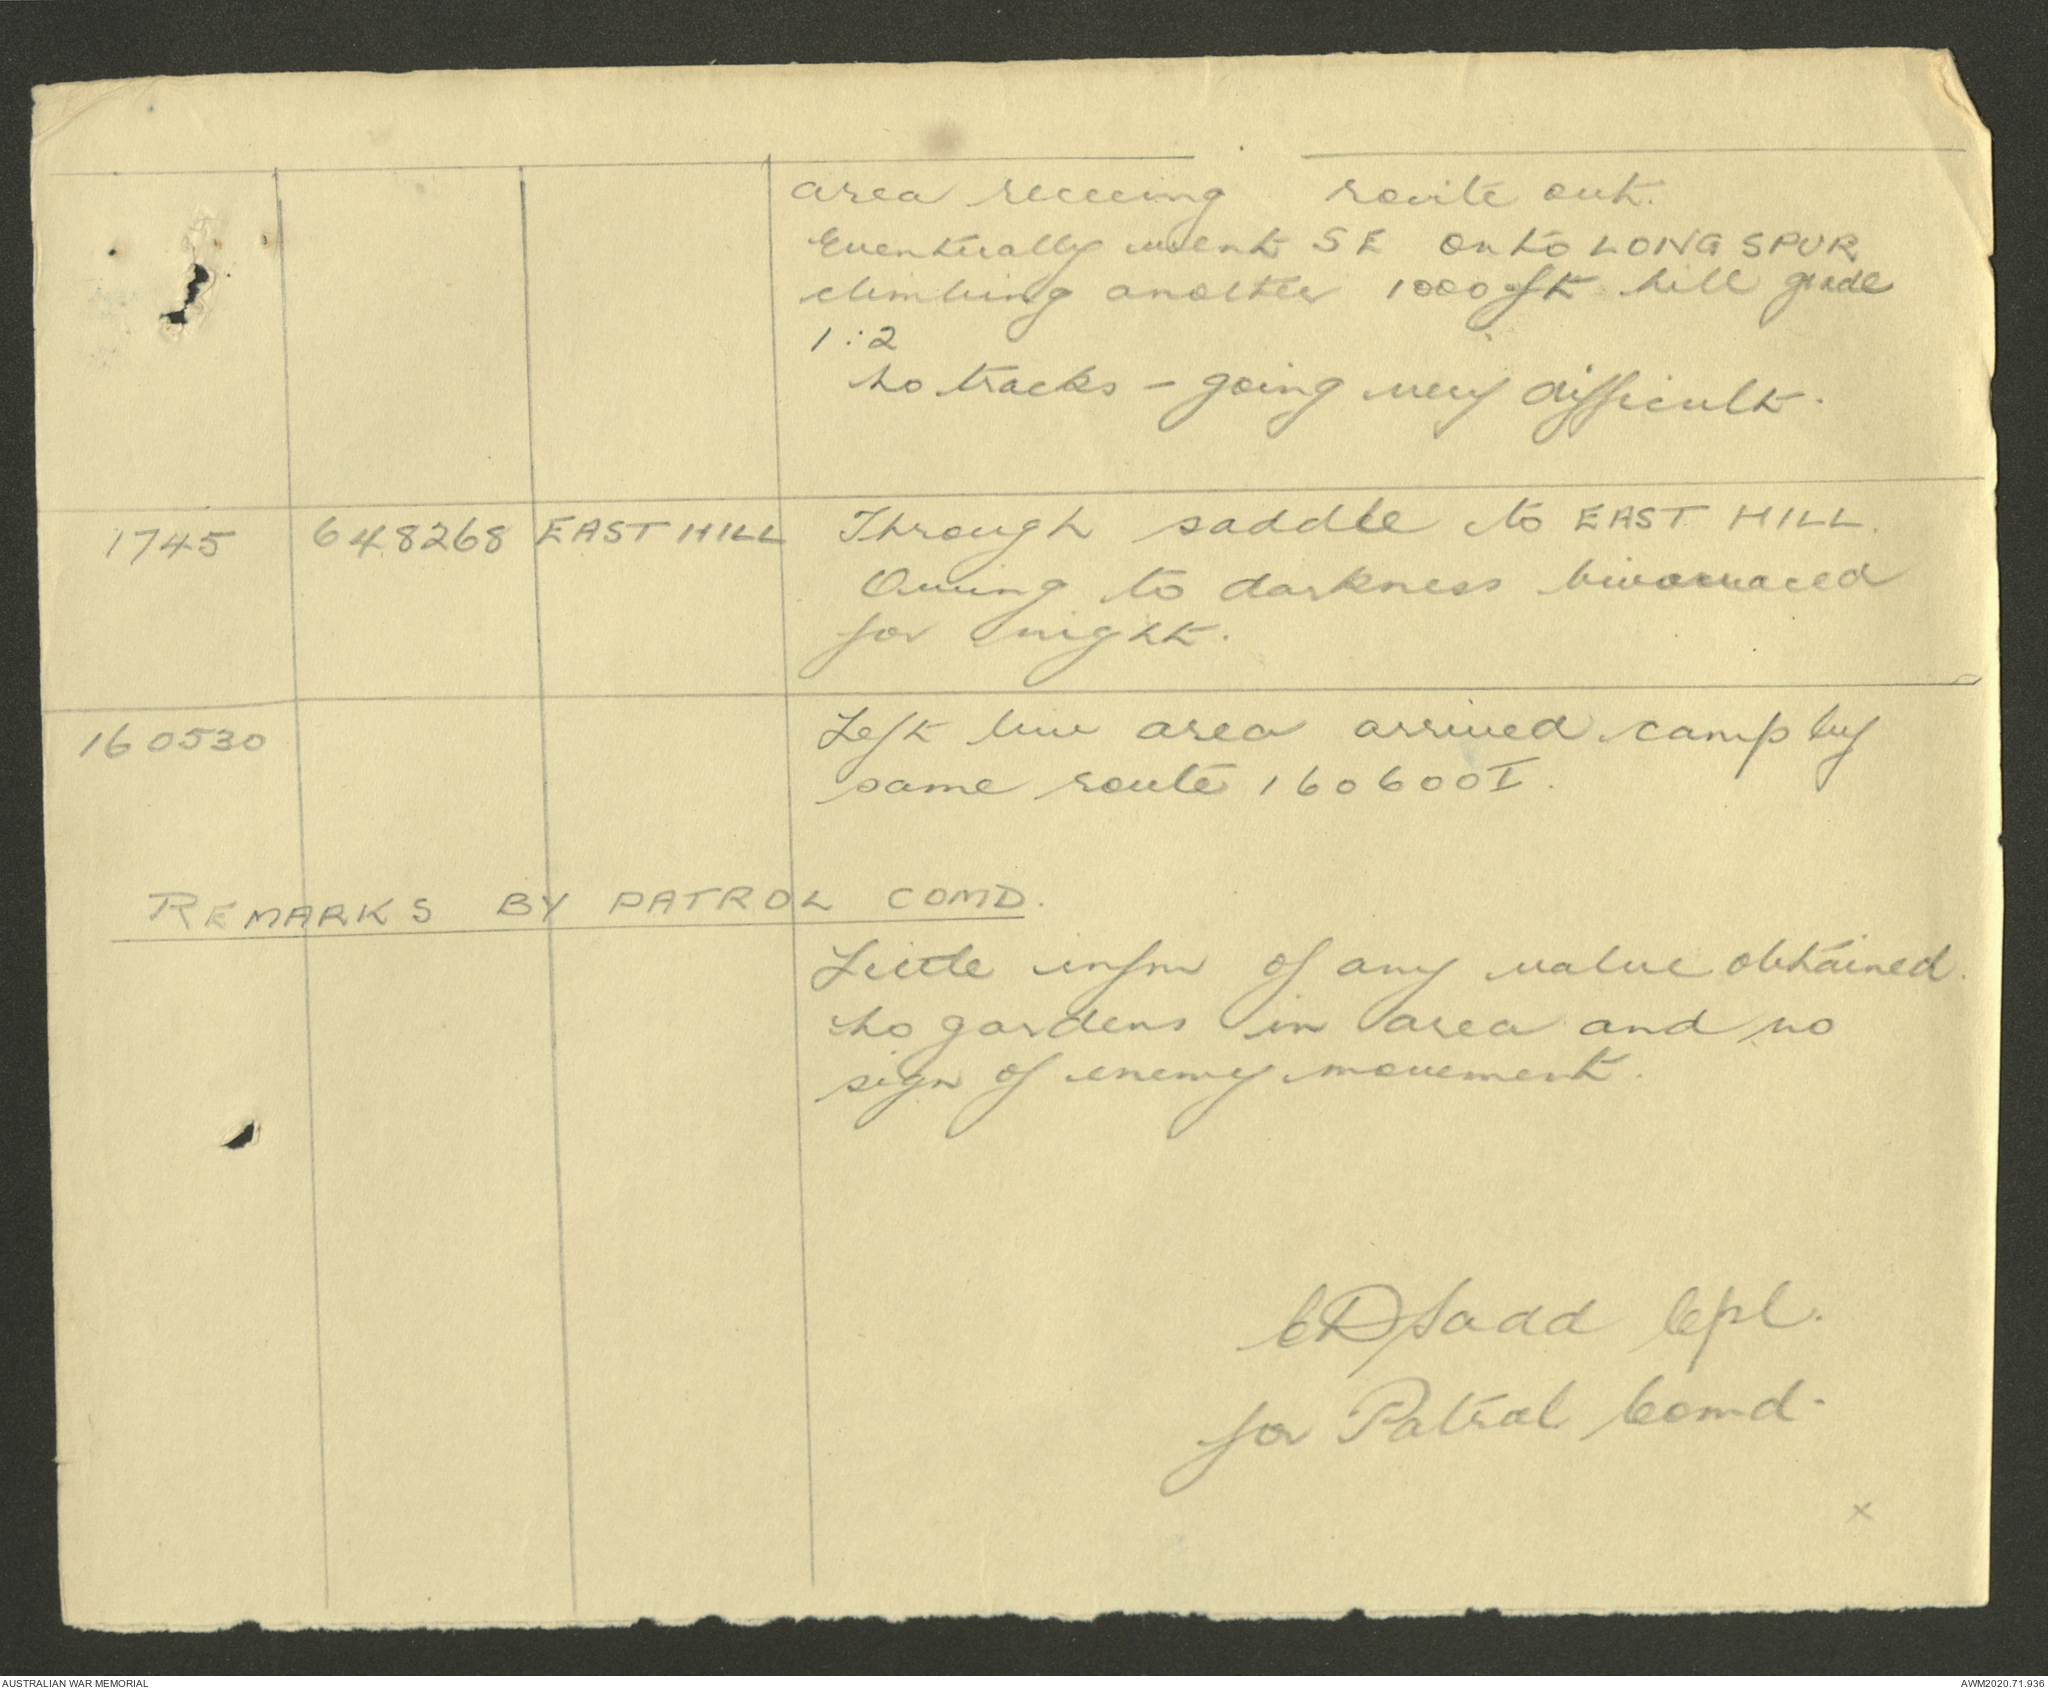 area recceing route out.
Eventually went SE onto LONG SPUR
climbing another 1000 ft hill grade
1:2
No tracks - going very difficult.
1745 648268 EAST HILL Through saddle to EAST HILL.
Owing to darkness bivouaced
for night.
160530 Left biv area arrived camp by
same route 160600I.
REMARKS BY PATROL COMD.
Little infm of any value obtained.
No gardens in area and no
sign of enemy movement.
Sadd Cpl.
for Patrol Comd.
x
AUSTRALIAN WAR MEMORIAL AWM2020.71.936